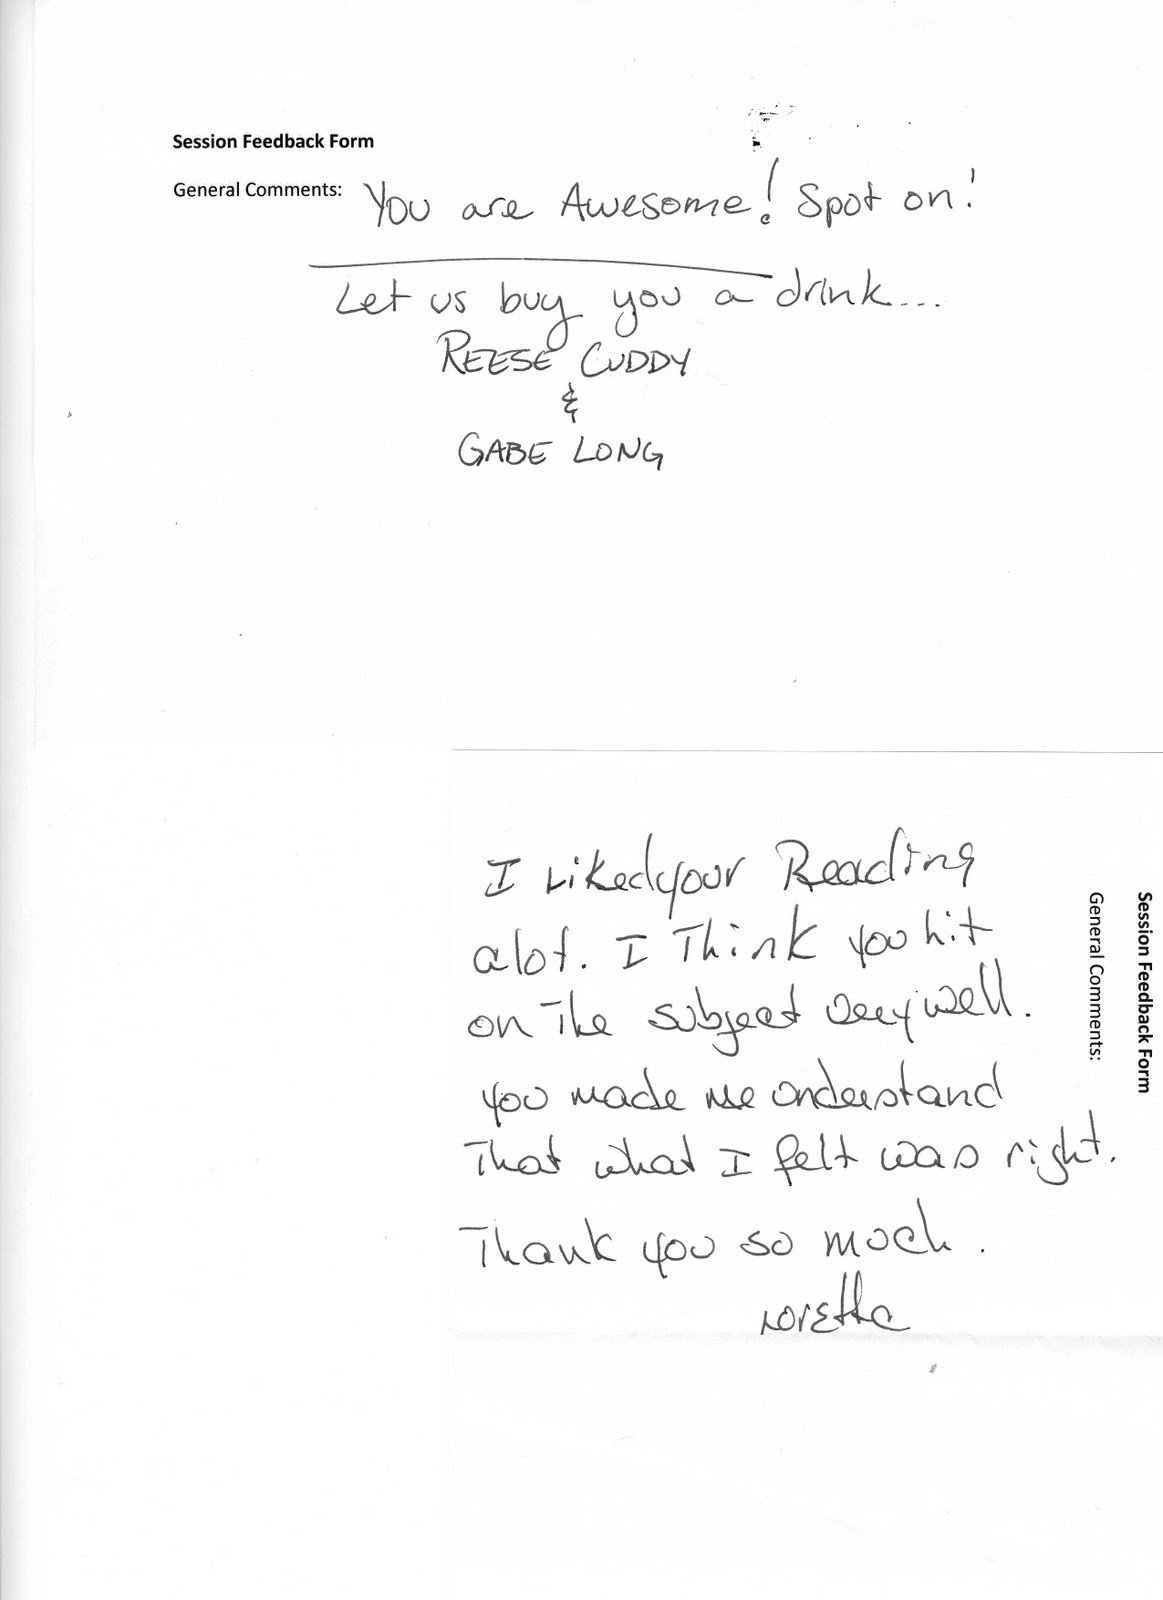 Session Feedback Form
General Comments: You are Awesome! Spot on!
Let us buy you a drink...
REESE CUDDY
&
GABE LONG
Session Feedback Form
General Comments:
I Liked your Reading
alot. I Think you hit
on The subject very well.
you made me understand
That what I felt was right.
Thank you so much.
Loretta